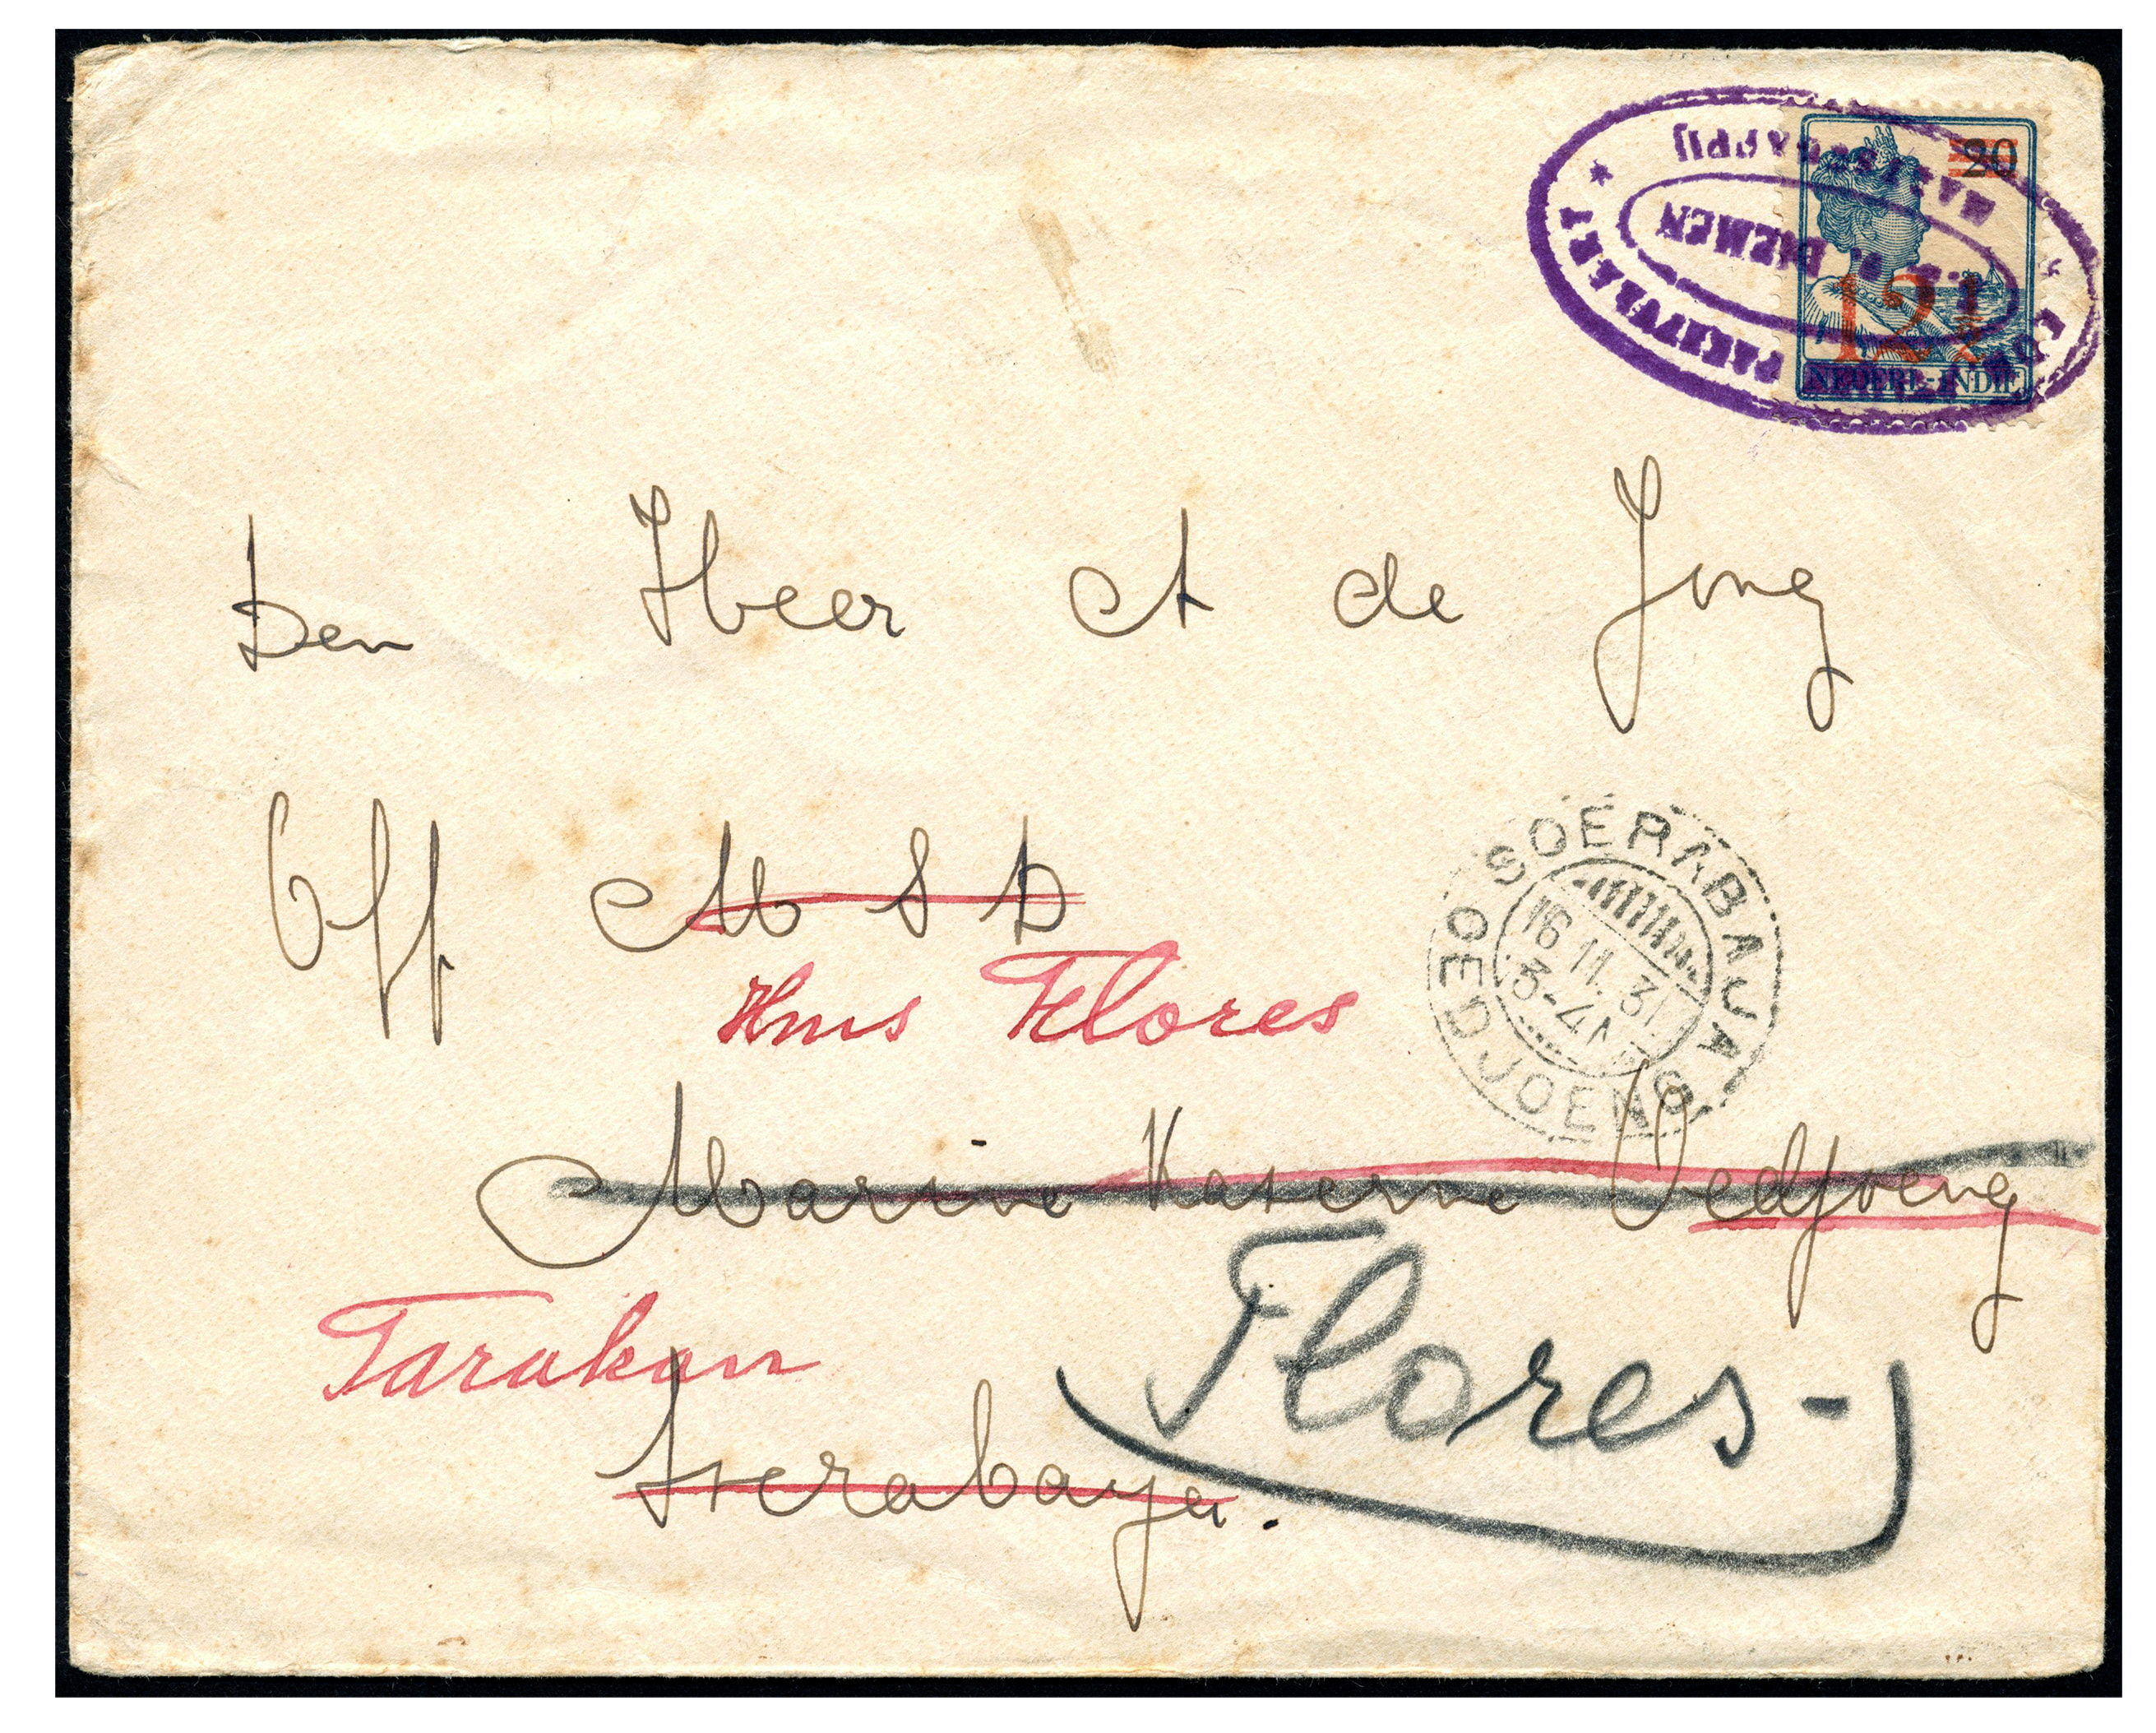 PAKETVAART
MAATSCHAPPIJ
DIEMEN
20
12½
NEDERL-INDIË
Den Heer A de Jong
Off M S D
Hms Flores
SOERABAJA
OEDJOENG
16.11.31
3-4N
Marine Kaserne Oedjoeng
Tarakan
Flores-
Soerabaya.